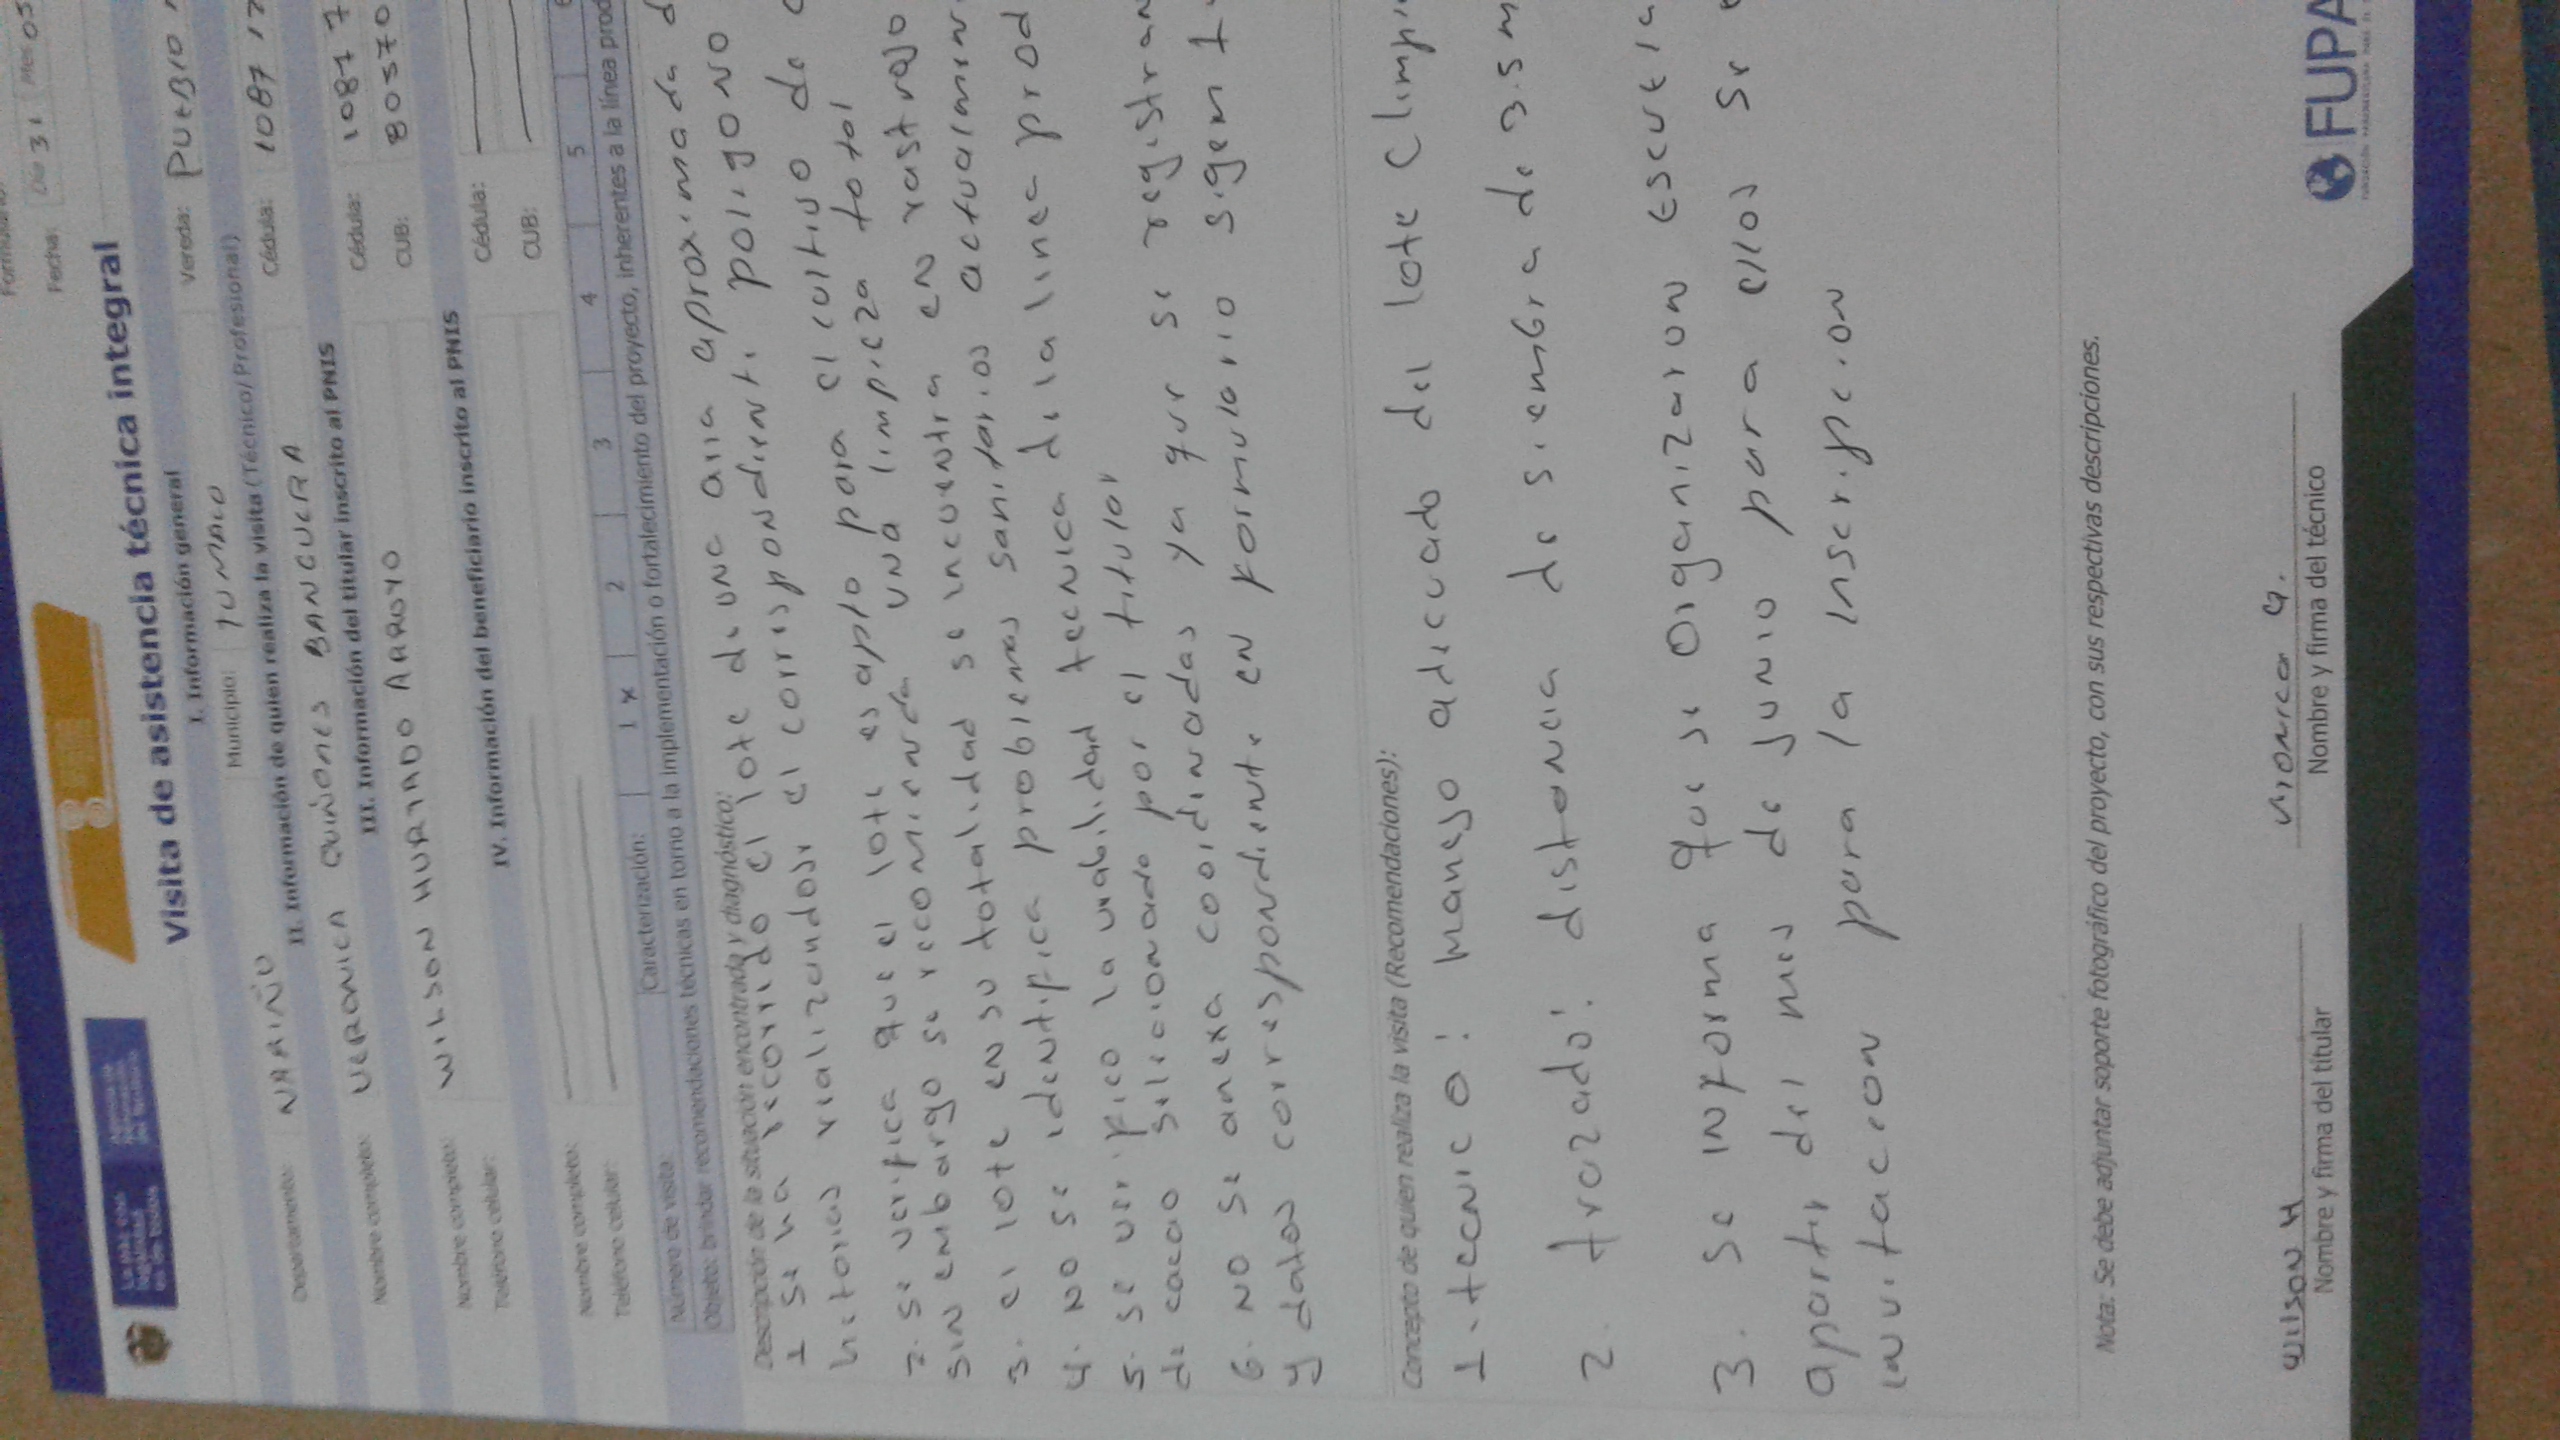 Fecha: Día 31 Mes 05
Visita de asistencia técnica integral
I. Información general
Departamento: NARIÑO Municipio: TUMACO Vereda: PUEBLO
II. Información de quien realiza la visita (Técnico/ Profesional)
Nombre completo: VERONICA QUIÑONES BANGUERA Cédula: 1087 12
III. Información del titular inscrito al PNIS
Nombre completo: WILSON HURTADO ARROYO Cédula: 1087 7
Teléfono celular: CUB: 80570
IV. Información del beneficiario inscrito al PNIS
Nombre completo: Cédula:
Teléfono celular: CUB:
Número de visita: Caracterización: 1 x 2 3 4 5
Objeto: brindar recomendaciones técnicas en torno a la implementación o fortalecimiento del proyecto, inherentes a la línea prod
Descripción de la situación encontrada y diagnóstico:
1 Se ha recorrido el lote de una area aproximada d
hetorias realizandose el correspondiente poligono
2. se verifica que el lote es apto para el cultivo de c
sin embargo se recomienda una limpieza total
3. el lote en su totalidad se incuentra en rastrojo
4. No se identifica problemas sanitarios actualmen
5. se verifico la viabilidad tecnica de la linea prod
de cacao selecionado por el titular
6. No se anexa coordinadas ya que se registran
y datos correspondiente en formulario sigem 1
Concepto de quien realiza la visita (Recomendaciones):
1. tecnico: Manejo adecuado del lote (limpi
2. trazado: distancia de siembra de 3.5 m
3. Se informa que se Organizaron escuela
apartir del mes de Junio para ellos se
invitacion para la inscripcion
Nota: Se debe adjuntar soporte fotográfico del proyecto, con sus respectivas descripciones.
Wilson H Vronica Q.
Nombre y firma del titular Nombre y firma del técnico
FUPA